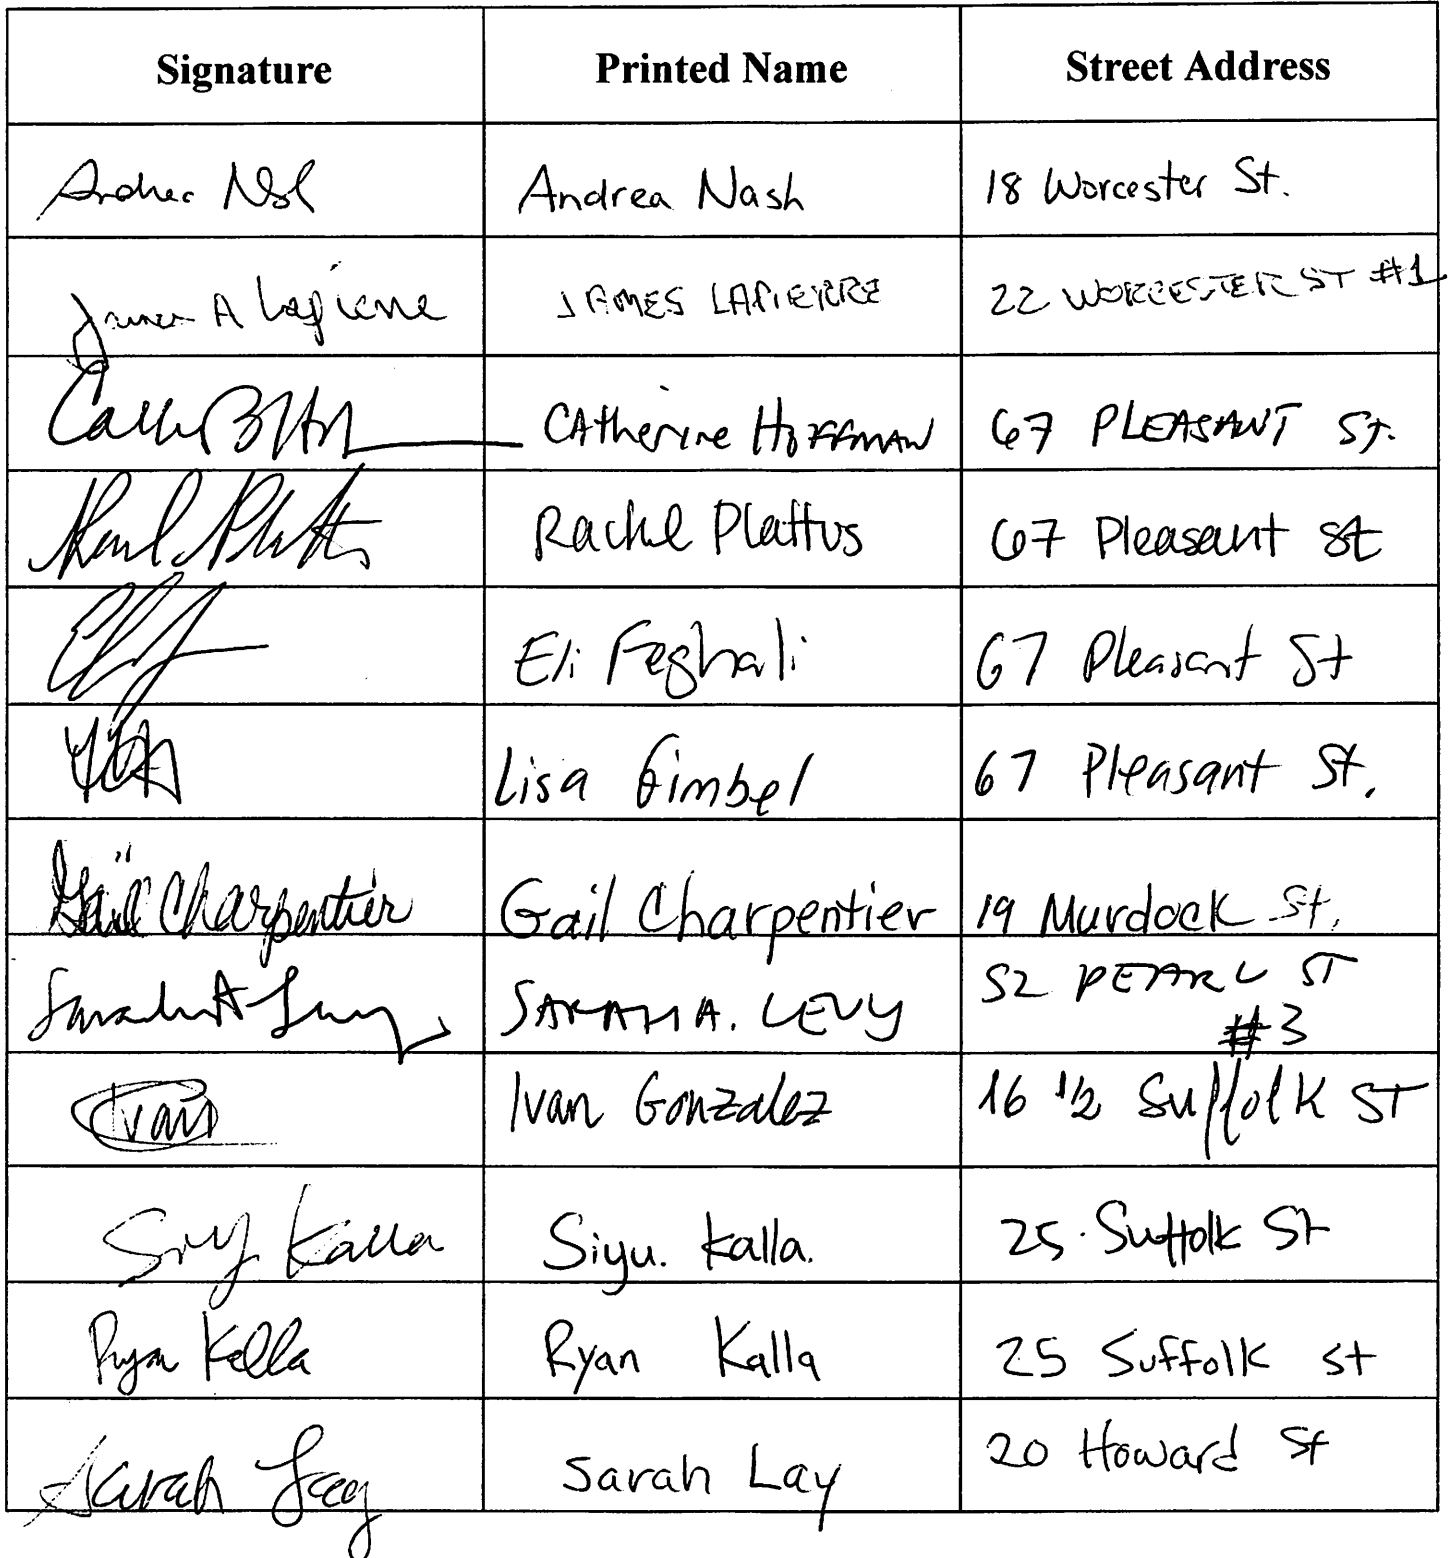 Signature Printed Name Street Address
Andrea Nash Andrea Nash 18 Worcester St.
James A Lapierre JAMES LAPIERRE 22 WORCESTER ST #1
CAtherine HOFFMAN 67 PLEASANT ST.
Rachel Plattus 67 Pleasant St
Eli Feghali 67 Pleasant St
Lisa Gimbel 67 Pleasant St.
Gail Charpentier Gail Charpentier 19 Murdock St.
Sarah A Levy SARAH A. LEVY 52 PEARL ST
#3
Ivan Ivan Gonzalez 16 1/2 Suffolk ST
Siyu Kalla Siyu. Kalla. 25 Suffolk St
Ryan Kalla Ryan Kalla 25 Suffolk st
Sarah Lay Sarah Lay 20 Howard St